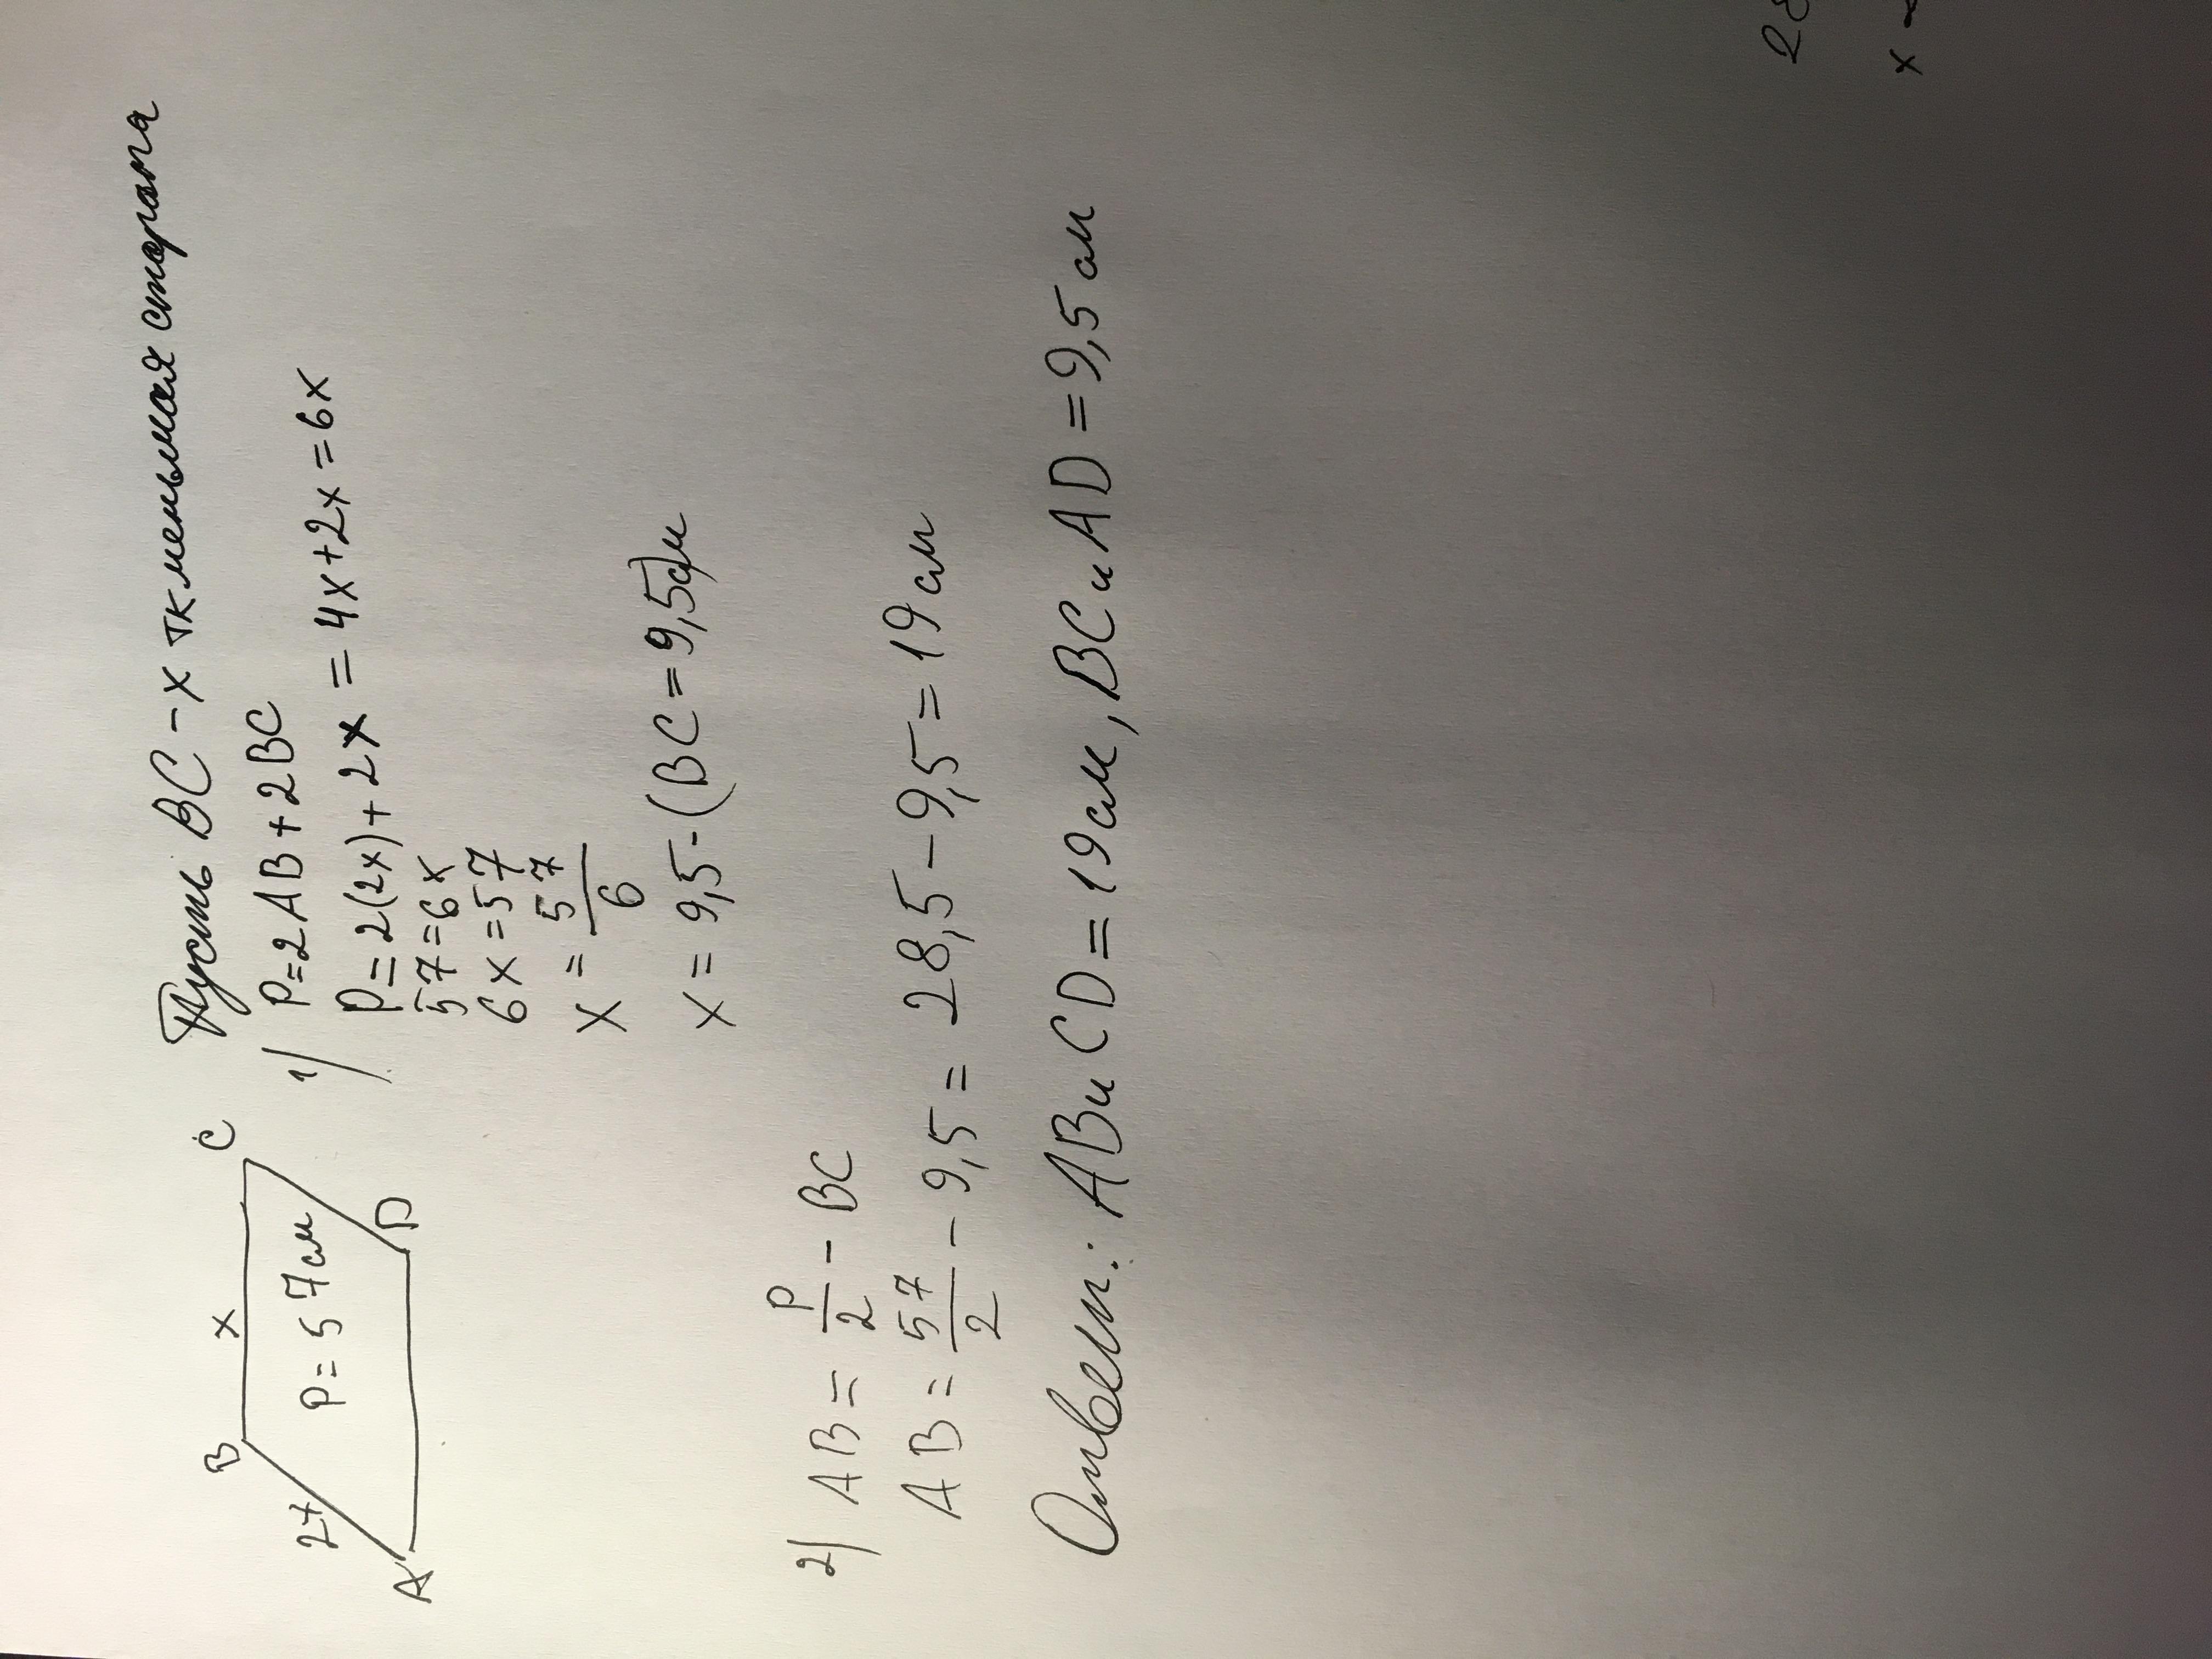 B x C
2x
P = 57см
A D
Пусть BC - x тк меньшая сторона
1) P=2AB+2BC
P=2(2x)+2x = 4x+2x=6x
57=6x
6x=57
x = 57/6
x = 9,5 - (BC = 9,5см)
2) AB = P/2 - BC
AB = 57/2 - 9,5 = 28,5 - 9,5 = 19 см
Ответ: AB и CD = 19см, BC и AD = 9,5 см